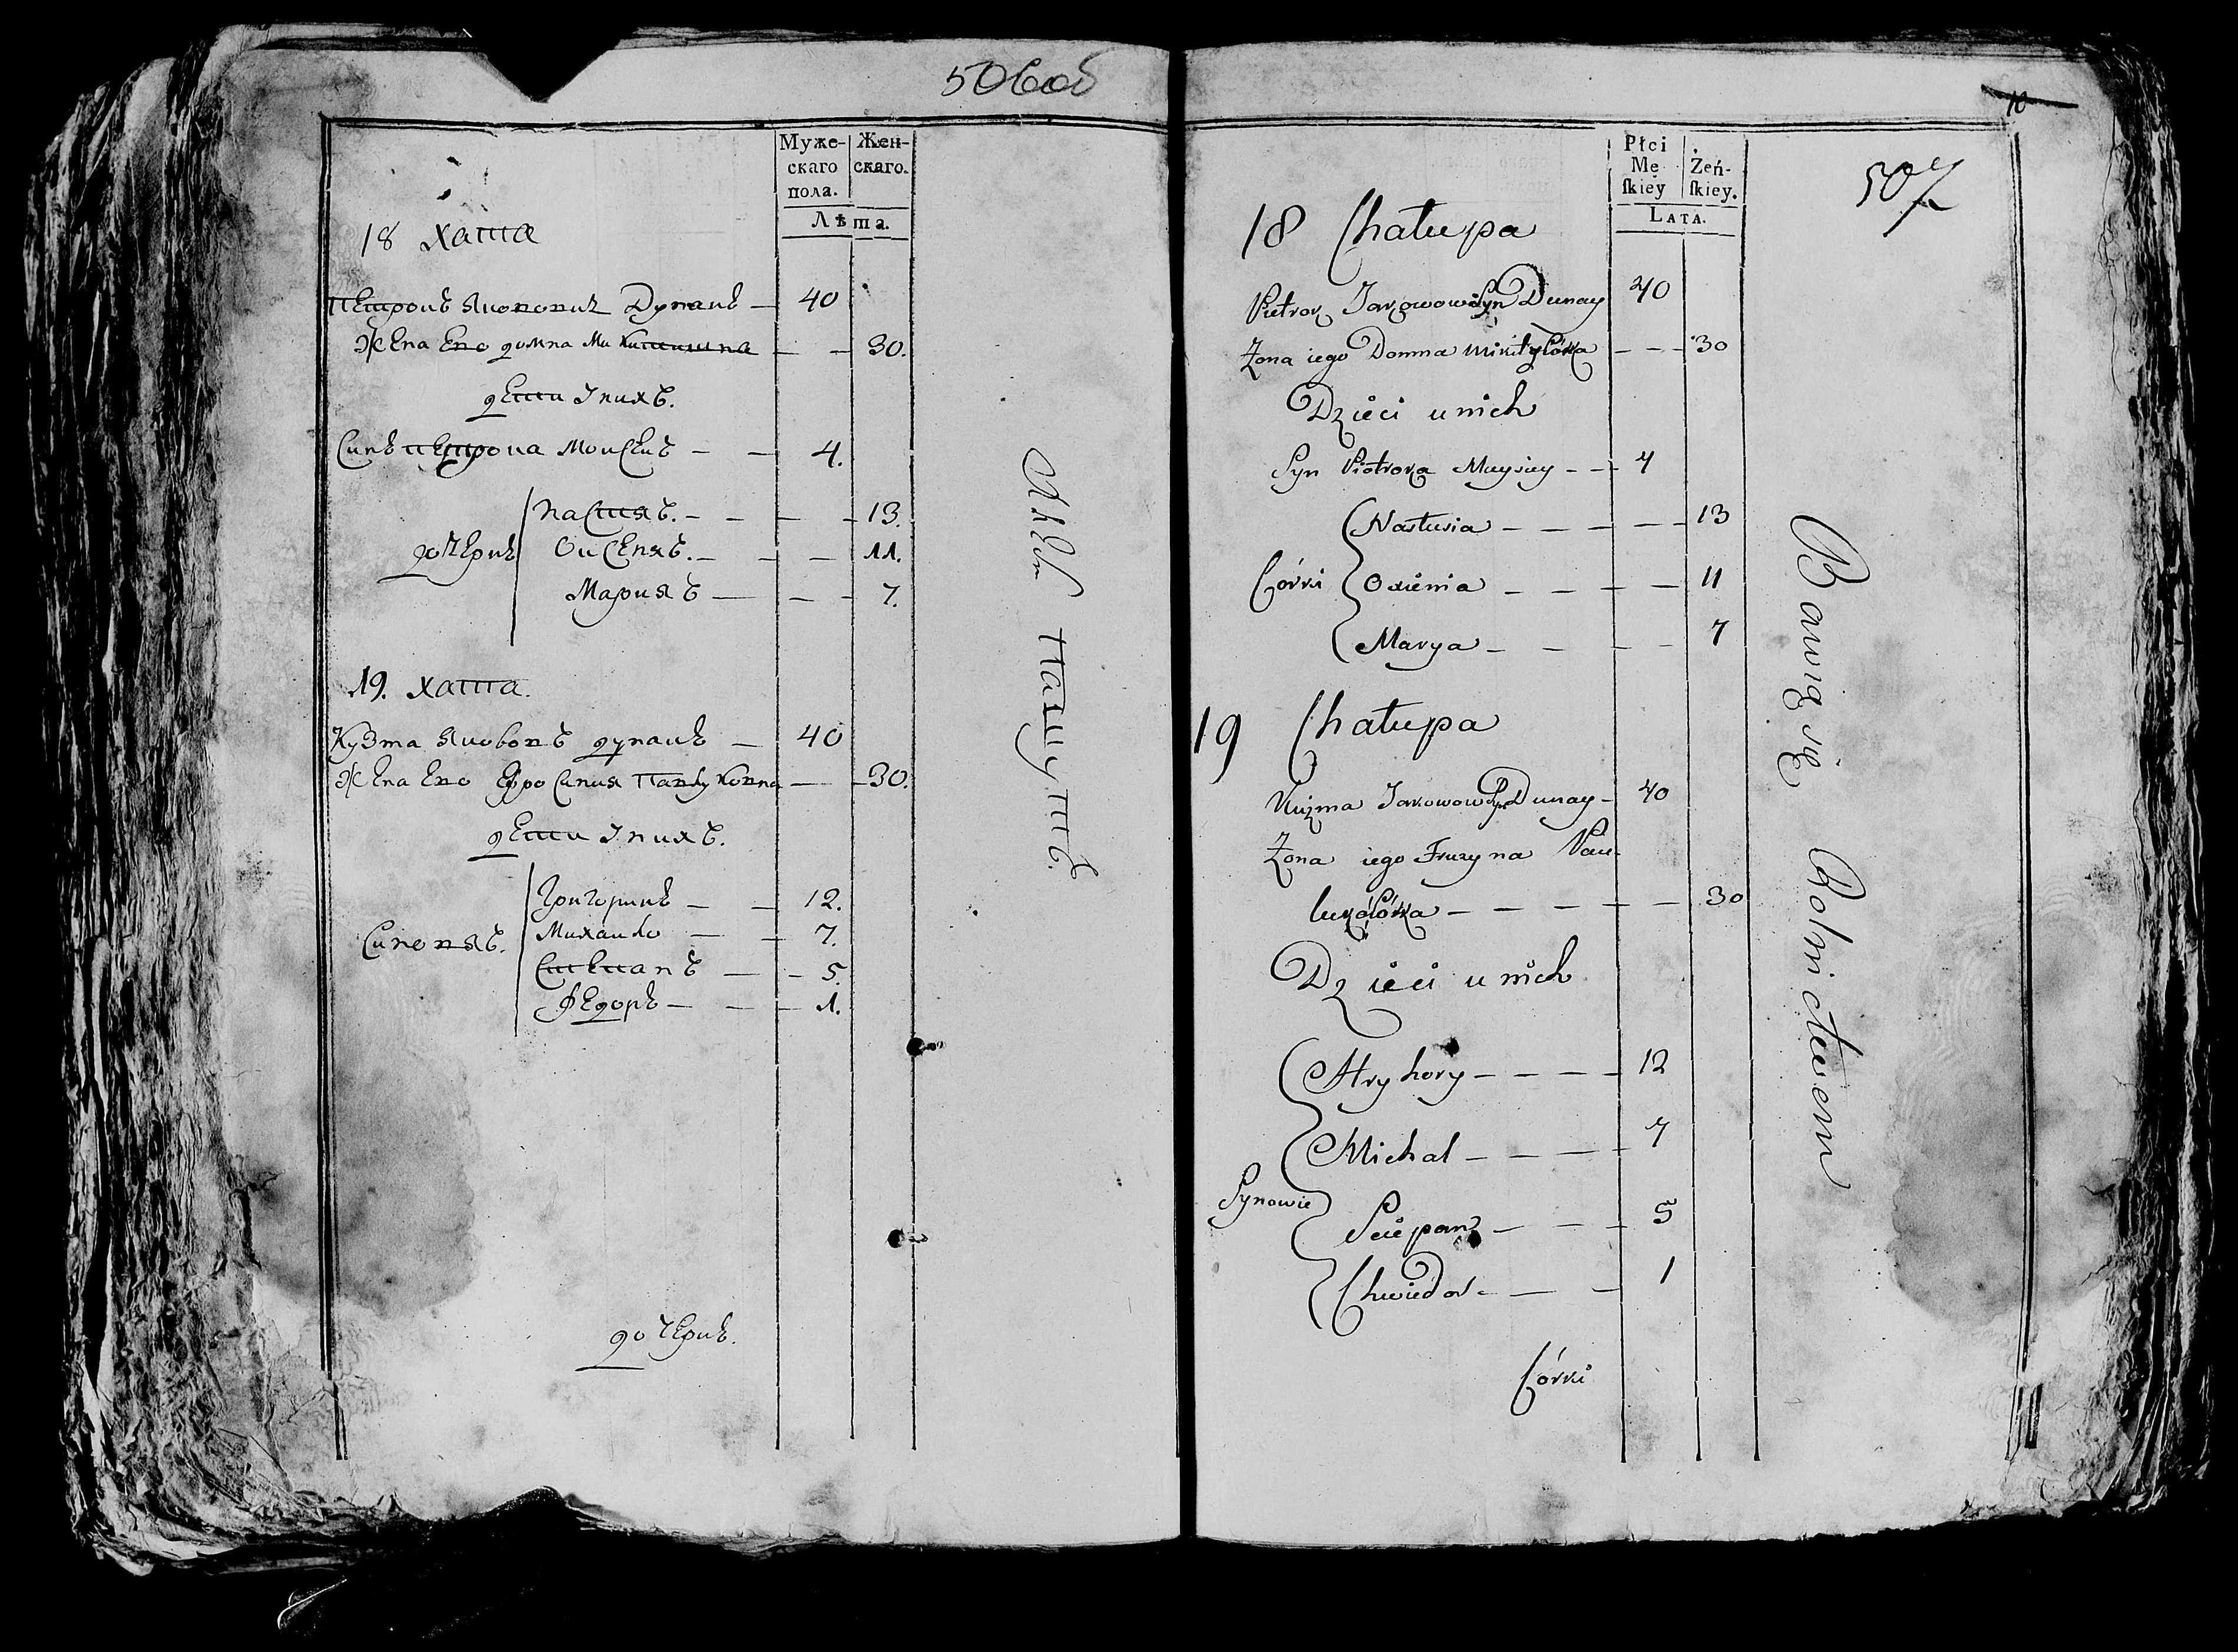 506об
Муже-
скаго
пола.
Жен-
скаго.
Лѣта.
18 хата
Петрокъ Яковович Дунаивъ — 40
Жена Его домна Микитишна — — 30.
дети Iнихъ.
Синъ петрока Моисеивъ — — 4.
дочери
Настяъ. — — — 13.
Оксеняъ. — — — 11.
Марияъ — — — 7.
19. хата.
Кузма Яковович дунаивъ — 40
Жена Его Ефросиния — 30.
дети Iнихъ.
Синовяъ.
Григории — — 12.
Михаило — — 7.
Степанъ — — 5.
Федоръ — — 1.
дочери.
пашутъ.
10
507
Płci
Mę
ſkiey
Żeń-
ſkiey.
LATA.
18 Chałupa
Pietrok Jakowow Syn Dunay 40
Żona iego Domna Mikitycówka — — — 30
Dzieci u nich
Syn Piotroka Muysiey — — 4
Córki
Nastusia — — — — — 13
Oxienia — — — — 11
Marya — — — — 7
19 Chałupa
Kuźma Jakowow Syn Dunay — 40
Żona iego Fruzyna Pau-
lukócówka — — — — — — 30
Dzieci u nich
Synowie
Hryhory — — — — 12
Michał — — — — 7
Sciepan — — — 5
Chwiedor — — — 1
Córki
Bawią się Rolnictwem